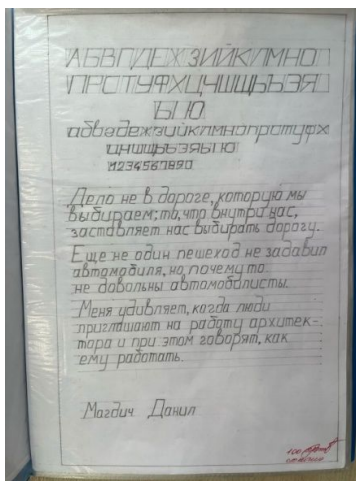 АБВГДЕЖЗИЙКЛМНО
ПРСТУФХЦЧШЩЬЪЭЯ
Ы Ю
абвгдежзийклмнопрстуфх
цчшщьъэяы ю
1234567890
Дело не в дороге, которую мы
выбираем; то, что внутри нас,
заставляет нас выбирать дорогу.
Еще не один пешеход не задавил
автомобиля, но почему то
не довольны автомобилисты.
Меня удивляет, когда люди
приглашают на работу архитек-
тора и при этом говорят, как
ему работать.
Магдич Данил